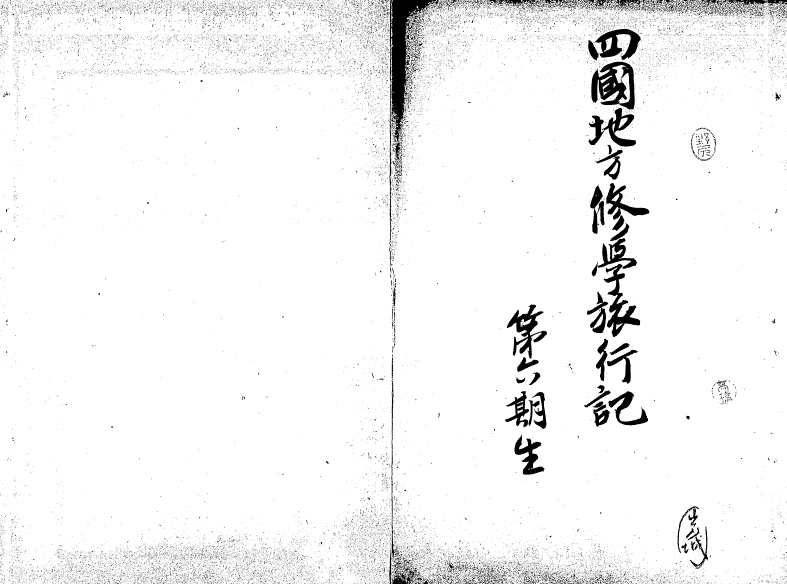 四國地方修學旅行記
第六期生